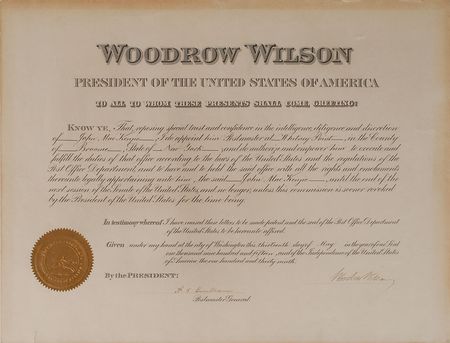 WOODROW WILSON
PRESIDENT OF THE UNITED STATES OF AMERICA
TO ALL TO WHOM THESE PRESENTS SHALL COME, GREETING:
KNOW YE, That, reposing special trust and confidence in the intelligence, diligence and discretion
of John Mac Kenzie, I do appoint him Postmaster at Whitney Point, in the County
of Broome, State of New York, and do authorize and empower him to execute and
fulfill the duties of that office according to the laws of the United States and the regulations of the
Post Office Department, and to have and to hold the said office with all the rights and emoluments
thereunto legally appertaining unto him, the said John Mac Kenzie, until the end of the
next session of the Senate of the United States, and no longer, unless this commission is sooner revoked
by the President of the United States for the time being.
In testimony whereof I have caused these letters to be made patent and the seal of the Post Office Department
of the United States to be hereunto affixed.
Given under my hand at the city of Washington this thirteenth day of May in the year of our Lord
one thousand nine hundred and fifteen, and of the Independence of the United States
of America the one hundred and thirty ninth.
By the PRESIDENT:
Woodrow Wilson
Postmaster General.